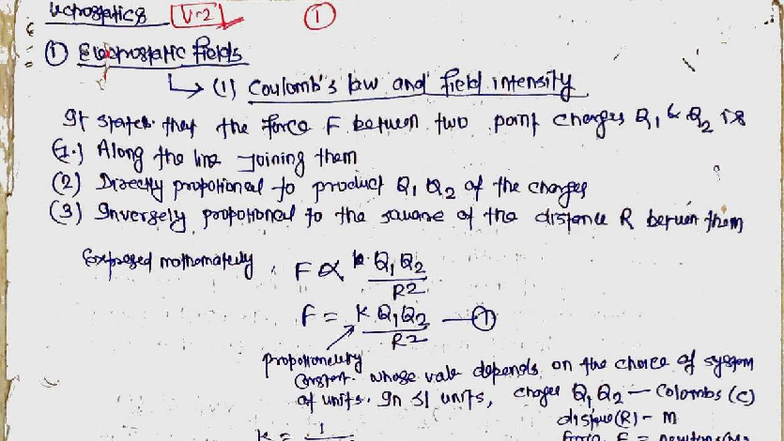 Uctrospatics V-2 ①
① Electrospatic fields
(1) Coulomb's law and field intensity
It states that the force F between two point charges Q1 & Q2 is
(1.) Along the line Joining them
(2) Directly proportional to product Q1 Q2 of the charges
(3) Inversely proportional to the square of the distance R between them
Expressed mathematically F ∝ k. Q1 Q2 / R2
F = k Q1 Q2 / R2 — ①
proportionality
constant. whose value depends on the choice of system
of units. In SI units, charges Q1 Q2 — Colombs (C)
distance (R) - M
k = 1 force F = newtons